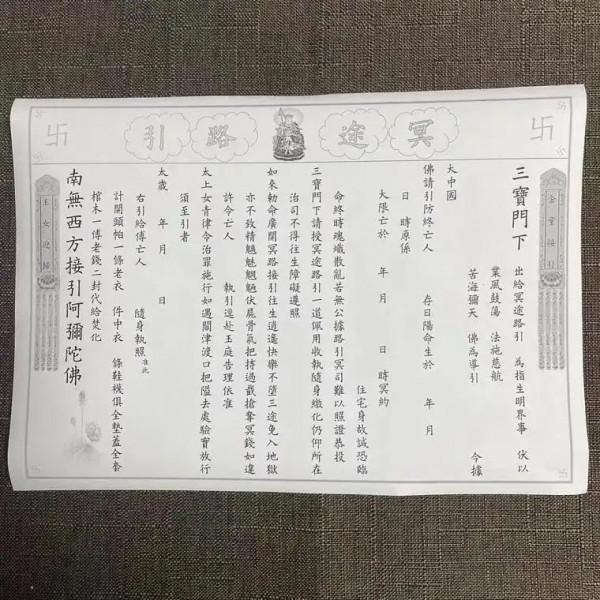 冥途路引
金童接引
三寶門下
出給冥途路引 為指生明界事 伏以
業風鼓蕩 法施慈航
苦海彌天 佛為導引 今據
大中國 住宅身故誠恐臨
佛請引防終亡人 存日陽命生於 年 月
日 時原係
大限亡於 年 月 日 時冥約
命終時魂魂散亂若無公據路引冥司難以照證恭投
三寶門下請授冥途路引一道佩用收執隨身繳化仍仰所在
治司不得往生障礙遵照
如來勅命廣開冥路接引往生逍遙快樂不墮三途免入地獄
亦不致精魅魍魎伏屍骨氣把持過截搶奪冥錢如違
許令亡人 執引逞赴玉庭告理依准
太上女青律令治罪施行如遇關津渡口把隘去處驗實放行
須至引者
太歲 年 月 日
右引給傅亡人 隨身執照准此
計開頭帕一條老衣 件中衣 條鞋襪俱全墊蓋全套
棺木一傅老錢二封代給焚化
南無西方接引阿彌陀佛
玉女迎歸